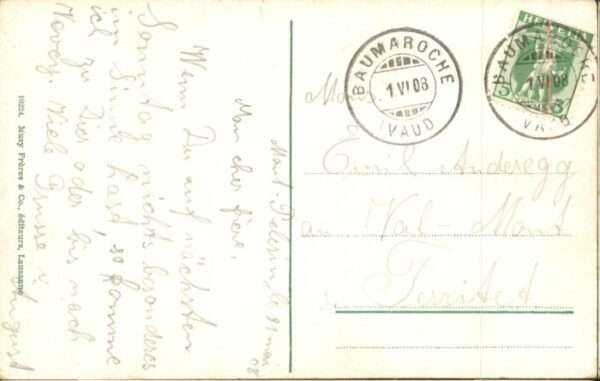 Mont-Pélerin, le 31 mai
08
Mon cher frère,
Wenn Du auf nächsten
Sonntag nichts besonderes
im Sinne hast, so komme
ich zu Dir oder bis nach
Vevey. Viele Grüsse v.
August
10234. Muey Frères & Co., éditeurs, Lausanne
BAUMAROCHE
1 VI 08
VAUD
HELVETIA
5
5
BAUMAROCHE
1 VI 08
VAUD
Mons.
Emil Anderegg
au Val-Mont
Territet